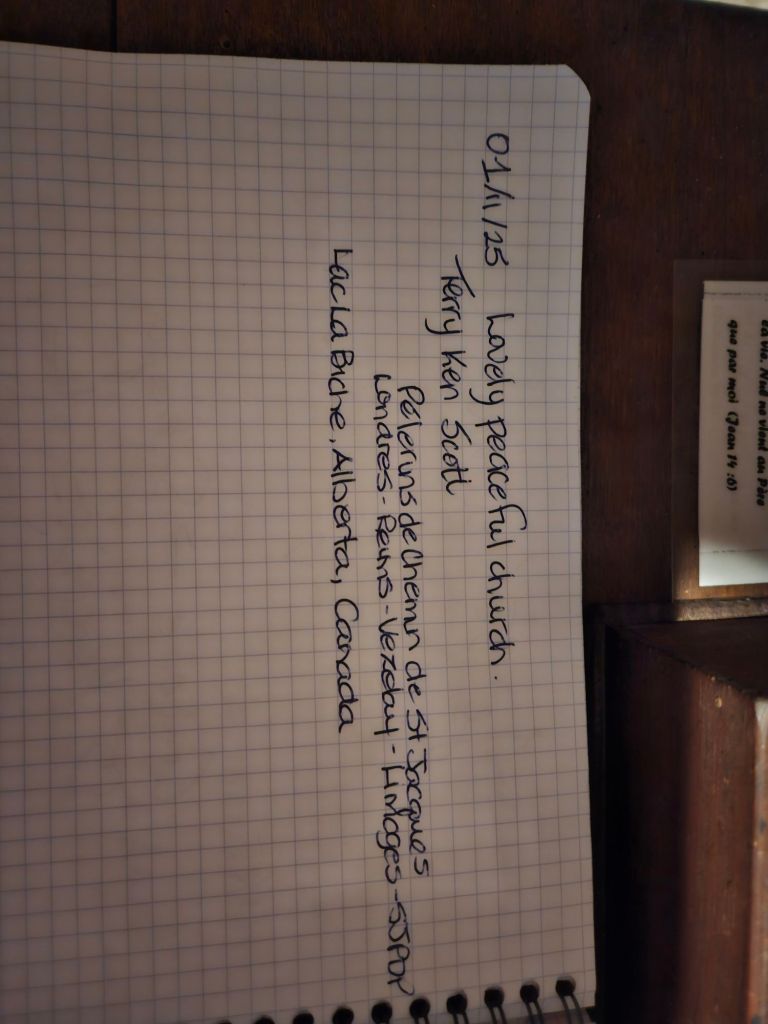 01/11/25 Lovely peaceful church.
Terry Ken Scott
Pèlerins de Chemin de St Jacques
Londres - Reims - Vezelay - Limoges - SJPDP
Lac La Biche, Alberta, Canada
la vie. Nul ne vient au Père
que par moi (Jean 14 :6)